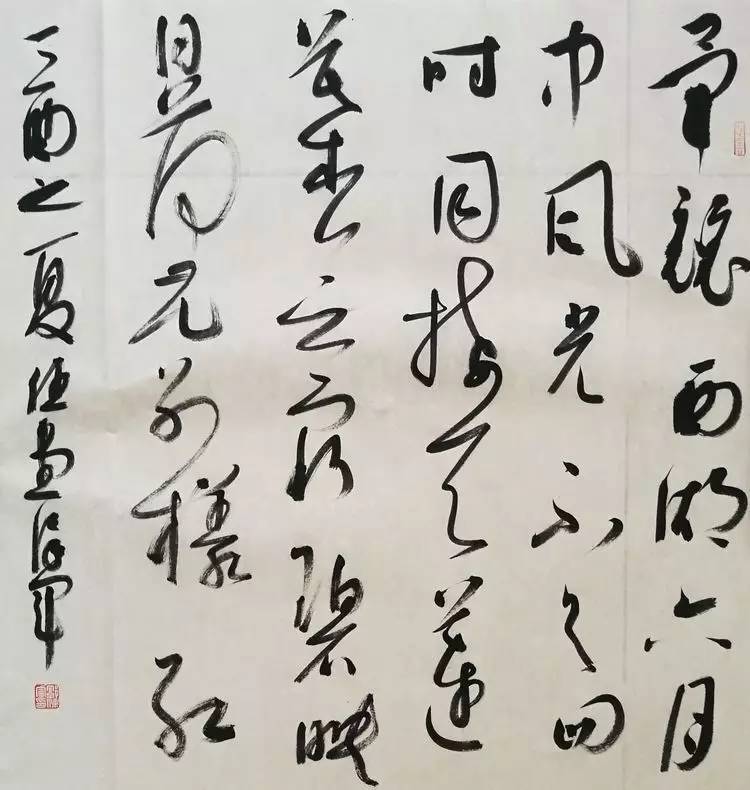 畢竟西湖六月
中风光不与四
时同接天蓮
葉无穷碧映
日荷花别樣红
丁酉之夏